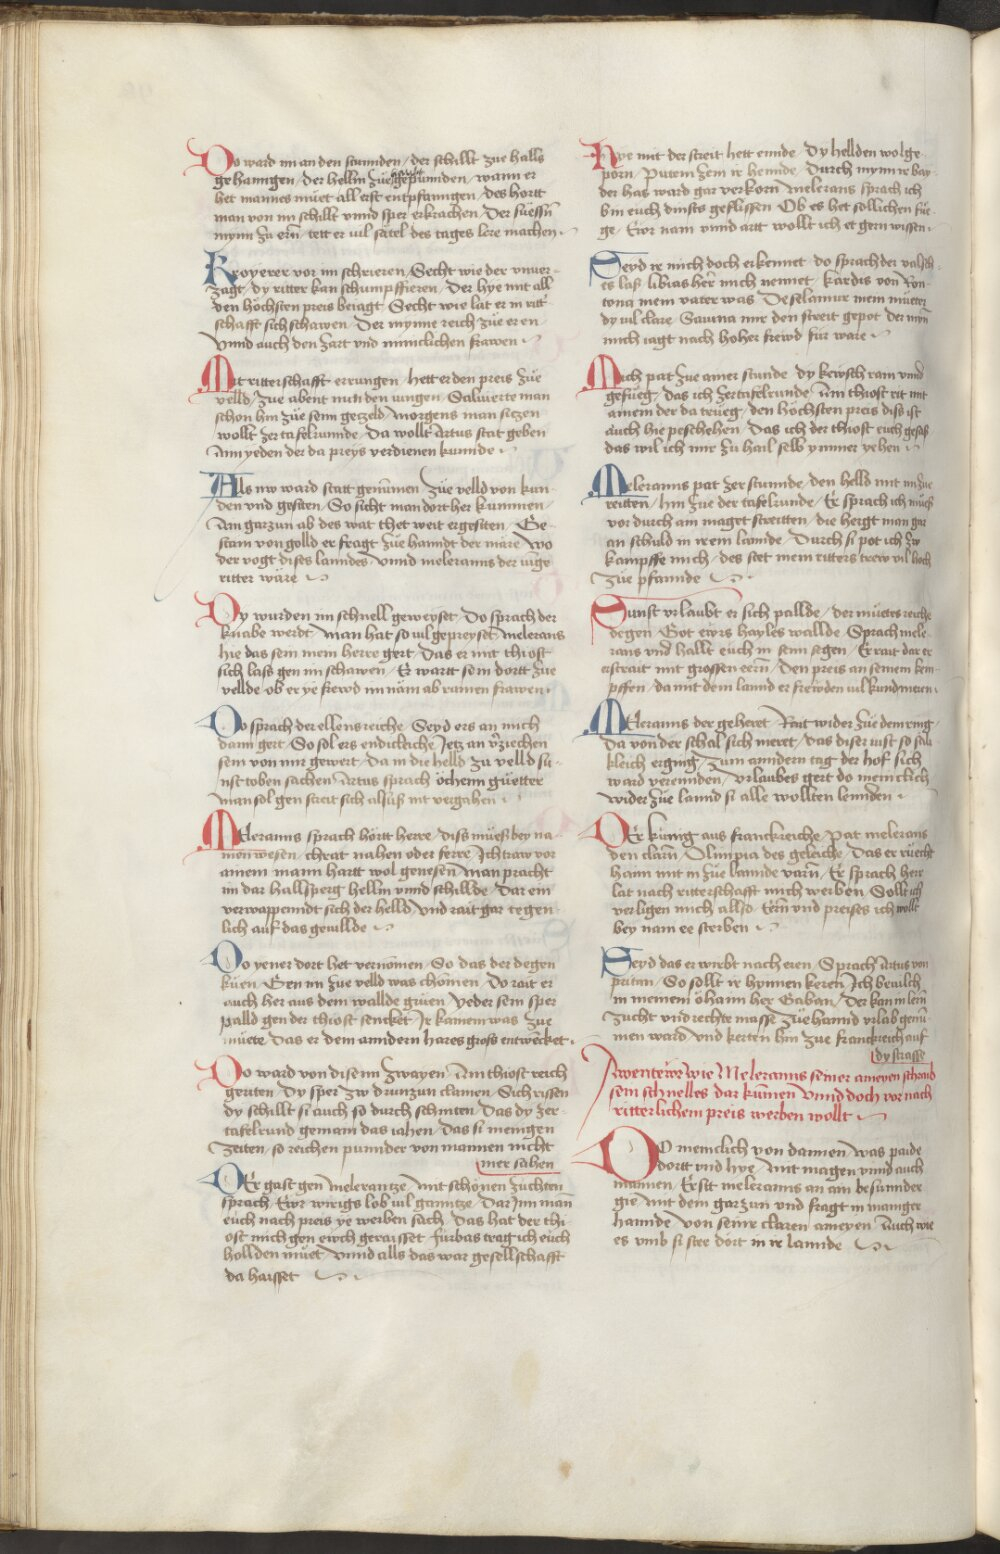 Do ward im an den stunnden / der schillt zue halls
gehanngen / der hellm zue haubt gepunnden / wann er
het mannes muet all erst entpfanngen / des hortt
man von im schillt vnnd sper erkrachen / Der suessn̄
mynn zu ern̄ / tett er vil satel des tages lere machen
Kroyerer vor im schrieren / Secht wie der vnuer-
zagt / dy ritter kan schumpffieren / Der hye mit all
den höchsten preis beiagt / Secht wie lat er in ritt
schafft sich schawen / Der mynne reich zue eren
vnnd auch den zart vnd minnclichen frawen
Mit ritterschafft errungen / hett er den preis zue
velld / zue abent nun den iungen / Salwierte man
schon hin zue seim gezeld / morgens man sitzen
wollt zer tafelrunnde / Da wollt Artus stat geben
Ainn yeden der da preys verdienen kunnde
Als nw ward statt genummen / zue velld von kun-
den vnd gesten / So sicht man dort her kummen /
Ain garzun ab des wat thet weit erglesten / Ge-
stain von golld er fragt zue hanndt der märe / wo
der vogt dises lanndes / vnnd meleranns der iunge
ritter wäre
Dy wurden im schnell geweyset / Do sprach der
knabe werdt / man hat so vil gepreyset / melerans
hie das sein mein herre gert / Das er mit thiost
sich lass gen im schawen / Er wartt sein dortt zue
vellde ob er ye frewd im näm ab rainen frawen
Do sprach der ellens reiche / Seyd ers an mich
dann gert / So sol ers endicleiche / Jetz an verziechen
sein von mir gewert / Da in die helld zu velld su-
nst toben sachen / Artus sprach öchenn guetter
man sol gen streit sich alsuss nit vergahen
Meleranns sprach hörtt herre / diss mües bey na-
men wesen / chrat nahen oder ferre / Ich traw vor
ainem mann hartt wol genesen / man pracht
im dar hallsperg hellm vnnd schillde / Dar ein
verwappenndt sich der helld / vnd rait gar tegen-
lich auf das geuillde
Do yener dort het vernomen / So das der degen
küen / Gen im zue velld was chomen / Do rait er
auch her aus dem wallde grüen / Yeder sein sper
palld gen der thiost sencket / Jr kainem was zue
muete / Das er dem anndern hares gross entwencket
Do ward von disenn zwayen / Ain thiost reich
geriten / Dy sper zw drunzun clainen / Sich rissen
dy schillt si auch so durch schniten / Das dy zer-
tafelrund gemain das iahen / Das si mengen
zeiten / so reichen punnder von mannen nicht
mer sahen
Der gast gen meleranze / mit schönen zuchten
sprach / Ewr wirigs lob vil gannze / Dar Inn man
euch nach preis ye werben sach / Das hat der thi-
ost mich gen ewch geraisset / fürbas trag ich euch
hollden muet / vnnd alls das war gesellschafft
da haisset
Nye mit der streit hett ennde / Dy hellden wol ge-
porn / Putten zein ir hennde / Durch mynn ir bay-
der has ward gar verkorn / melerans sprach ich
bin euch dinsts geflissen / Ob es het sollichen fue-
ge / Ewr nam vnnd artt wollt ich et gern wissen
Seyd ir mich doch erkennet / do sprach der valsch-
es lass / libias herr mich nennet / kardis von Ron-
tona mein vater was / Deselamur mein muetter
dy vil clare / Sawina mir den streit gepot / der mynn
mich iagt nach hoher frewd für ware
Mich pat zue ainer stunde / dy kewsch rain vnnd
gefueg / Das ich zer tafelrunde / Ain thiost rit mit
ainem der da trueg / den höchsten preis diss ist
auch hie peschehen / Das ich der thiost euch gesass
das wil ich mir zu hail selb ymmer yehen
Meleranns pat zer stunnde / den helld mit im zue
reitten / hin zue der tafelrunde / Er sprach ich muess
vor durch ain maget streitten / die hergt man gar
an schuld in irem lannde / Durch si pot ich zw
kampffe mich / des stet mein ritters trew vil hoch
zue pfannde
Sunst vrlaubt er sich pallde / der muetes reiche
degen / Got ewrs hayles wallde / Sprach mele-
rans vnd hallt euch in seim segen / Er rait dar er
erstrait mit grossen eern̄ / Den preis an seinem kem-
pffen / da mit dem lannd er frewden vil kund meren
Meleranns der geheret / Rait wider zue dem ring /
Da von der schal sich meret / das diser iust so sale-
kleich erging / zum anndern tag der hof sich
ward verennden / vrlaubes gert do meniclich
wider zue lannd si alle wollten lennden
Der künig aus franckreiche / Pat melerans
den clarn̄ / Olimpia des geleiche / Das er ruecht
hain mit in zue lannde varn̄ / Er sprach herr
lat nach ritterschafft mich werben / Sollt ich
verligen mich allso / Eern̄ vnd preises ich wollt
bey nam ee sterben
Seyd das er wirbt nach eren / Sprach Artus von
pritan / So sollt ir hynnen keren / Ich beuilch
in meinem öhaim her Gaban / Der kan in lern̄
zucht vnd rechte masse / zue hannd vrlab genu-
men ward vnd kerten hin zue franckreich auf
dy strasse
Awentewr wie Meleranns seiner ameyen schraib
sein schnelles dar kumen vnnd doch vor nach
ritterlichem preis werben wollt
DO meniclich von dannen / was paide
dortt vnd hye / mit magen vnnd auch
mannen / Er sit meleranns an ain besunnder
gie / mit dem garzun vnd fragt in manger
hannde / von seiner claren ameyen / Auch wie
es vmb si stee dort in ir lannde